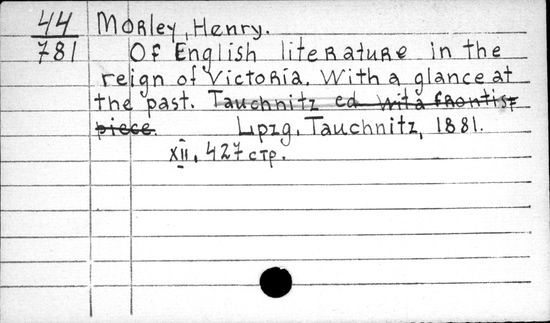 44 Morley, Henry.
781 Of English literature in the
reign of Victoria. With a glance at
the past. Tauchnitz ed with frontis-
piece. Lpzg, Tauchnitz, 1881.
XII, 427 стр.